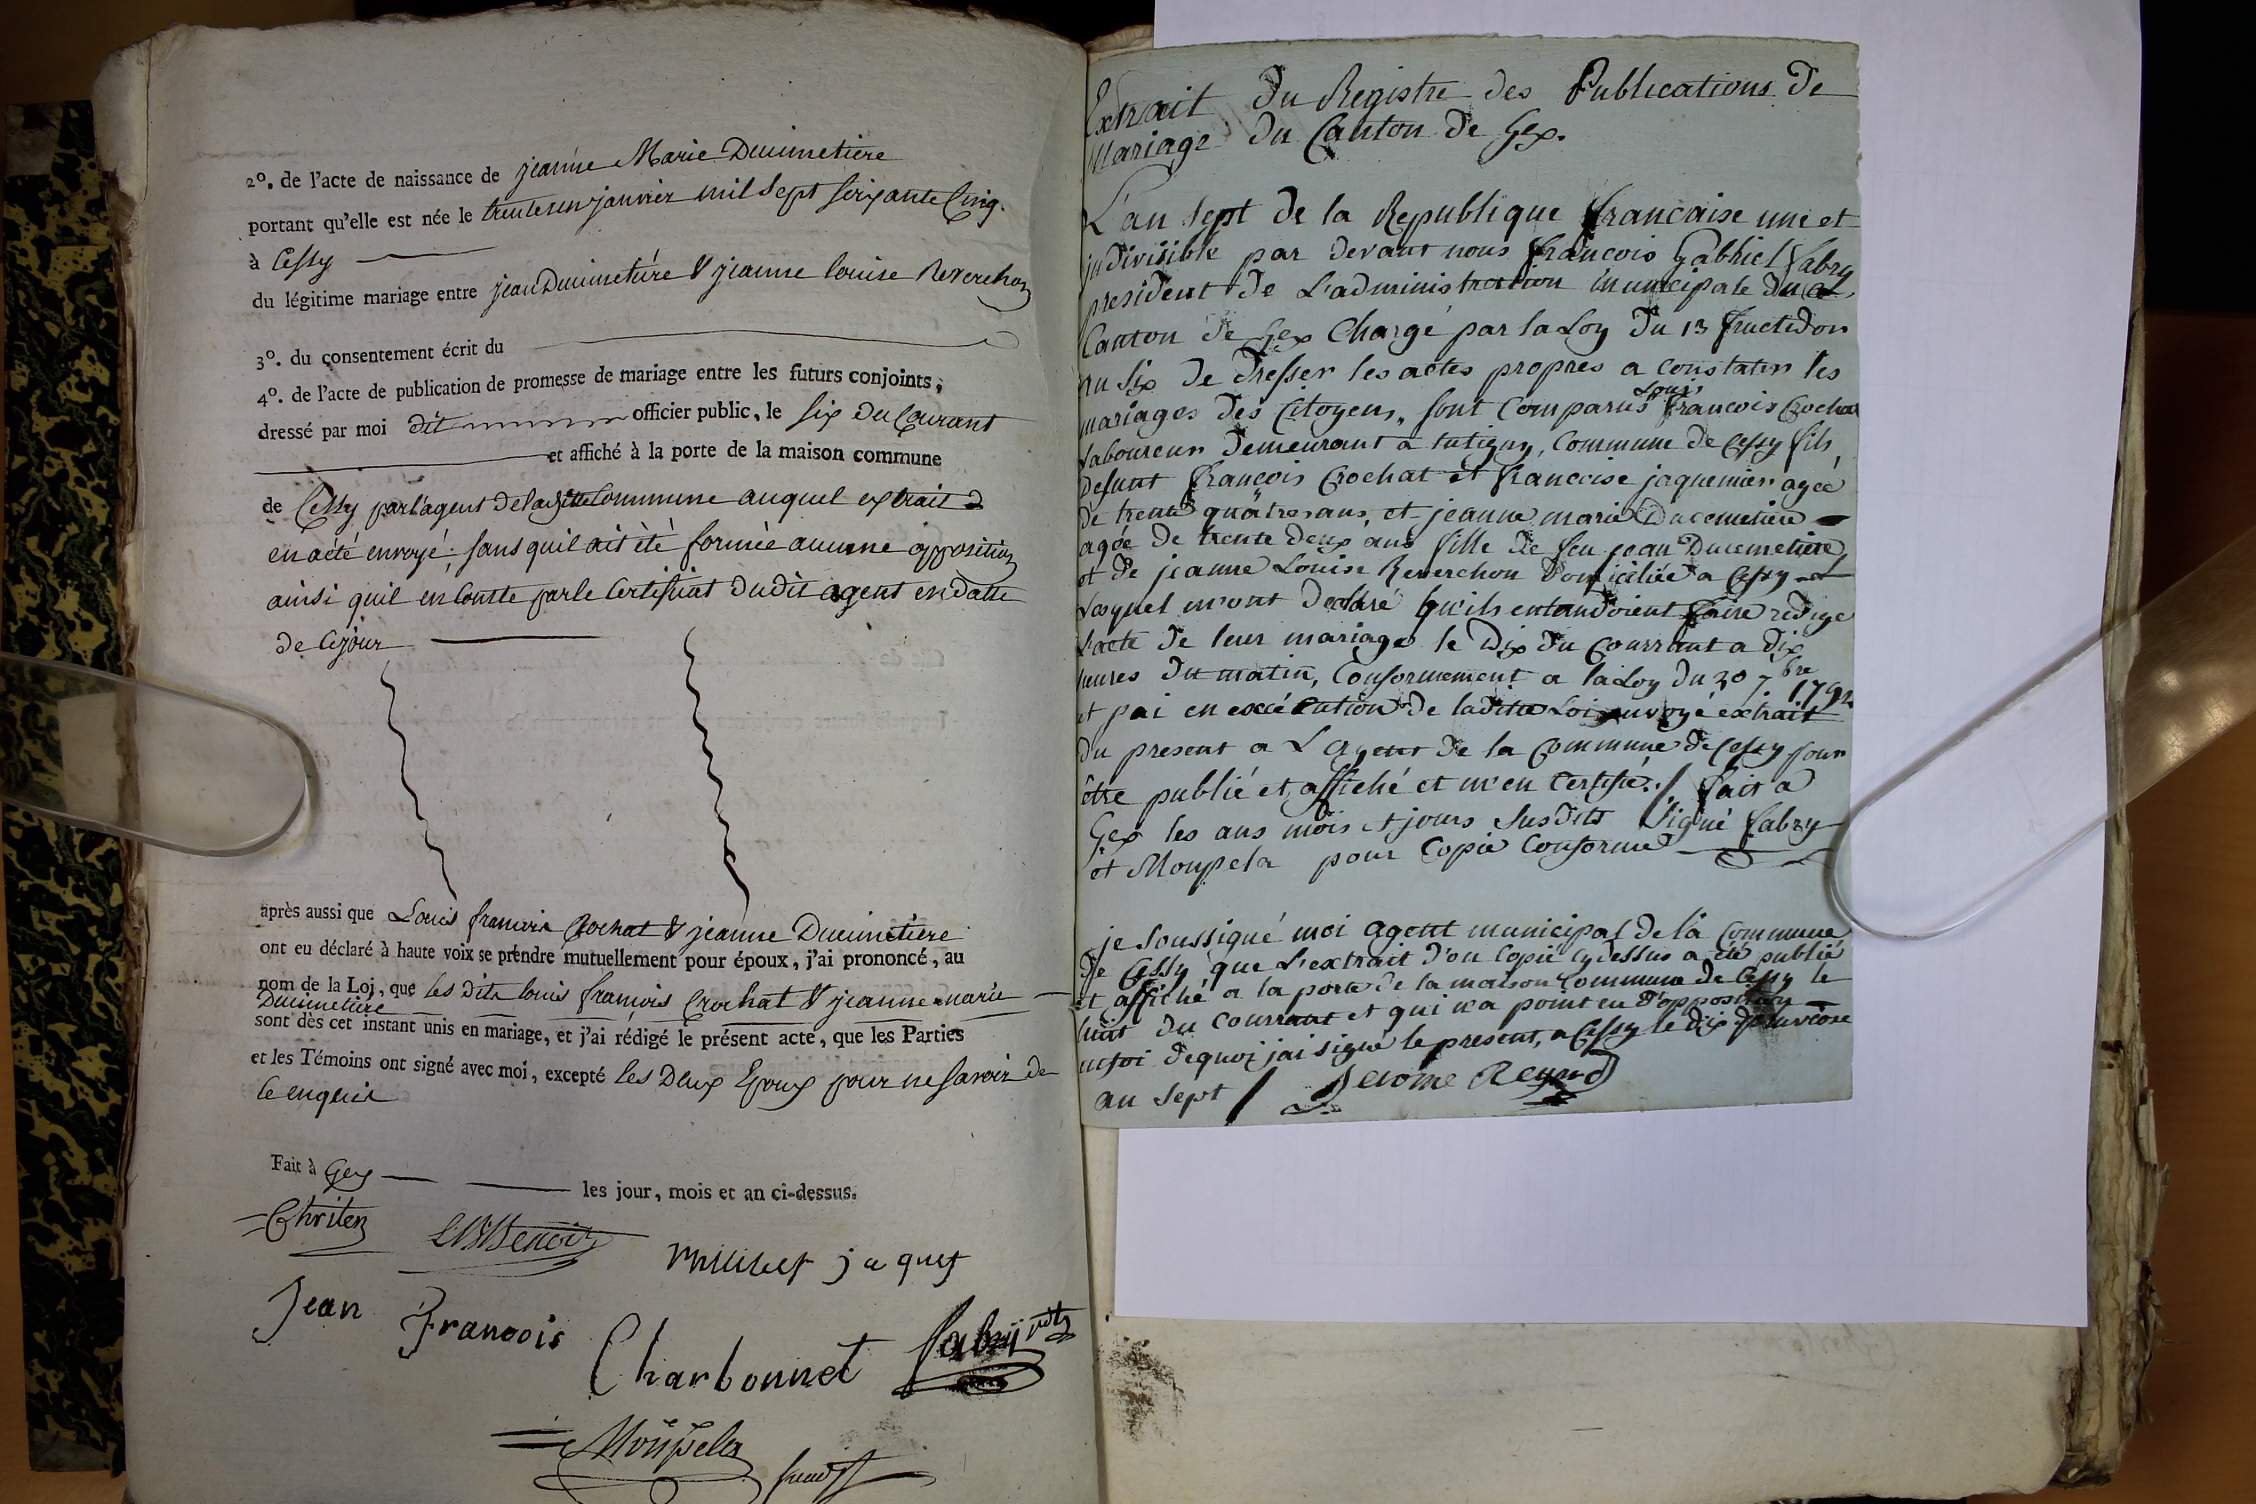 2º. de l'acte de naissance de jeanne Marie Ducimetiere
portant qu'elle est née le trente un janvier mil sept soixante Cinq.
à Cessy
du légitime mariage entre jean Ducimetiére & jeanne louise Reverchon
3º. du consentement écrit du
4º. de l'acte de publication de promesse de mariage entre les futurs conjoints,
dressé par moi dit officier public, le six du Courant
et affiché à la porte de la maison commune
de Cessy par l'agent de laditte Commune auquel extrait
en a été envoyé; sans quil ait été formée aucune opposition
ainsi quil en Conste par le Certificat dudit agent en datte
de ce jour
après aussi que Louis francois Crochat & jeanne Ducimetiere
ont eu déclaré à haute voix se prendre mutuellement pour époux, j'ai prononcé, au
nom de la Loi, que les dits louis francois Crochat & jeanne marie
Ducimetiére
sont dès cet instant unis en mariage, et j'ai rédigé le présent acte, que les Parties
et les Témoins ont signé avec moi, excepté les Deux Epoux pour ne savoir de
ce enquis
Fait à Gex les jour, mois et an ci-dessus.
Christen Benoit jaquet
Jean Francois Charbonnet fabry
Moupela
Extrait du Registre des Publications de
Mariage du Canton de Gex.
L'an sept de la Republique francaise une et
indivisible par devant nous francois Gabriel fabry
president de L'administration municipale du
Canton de Gex Chargé par la Loy du 13 fructidor
an six de dresser les actes propres a constater les
mariages des Citoyens, sont Comparus Louis francois Crochat
Laboureur demeurant a tutigny, Commune de Cessy fils
defunt françois Crochat et francoise jaquemier agée
de trente quatre ans, et jeanne marie Ducemetiere
agée de trente deux ans fille de feu jean Ducemetiere
et de jeanne Louise Reverchon Domiciliée a Cessy
Lesquel m'ont declaré qu'ils entandoient faire redige
L'acte de leur mariage le Dix du Courrant a dix
heures du matin, Conformement a la Loy du 20 7bre 1792
et j'ai en excécution de laditte Loi envoyé extrait
du present a L'agent de la Commune de Cessy pour
être publié et affiché et m'en Certifié./ fait a
Gex les ans mois et jours susdits signé fabry
et Moupela pour Copie Conforme
je soussigné moi agent municipal de la Commune
de Cessy que L'extrait d'ou Copie cy dessus a été publié
et affiché a la porte de la maison Commune de Cessy le
huit du courrant et qui n'a point eu d'opposition
enfoi dequoi jai signé le present, a Cessy le dix pluviose
an sept / Jerome Reymd